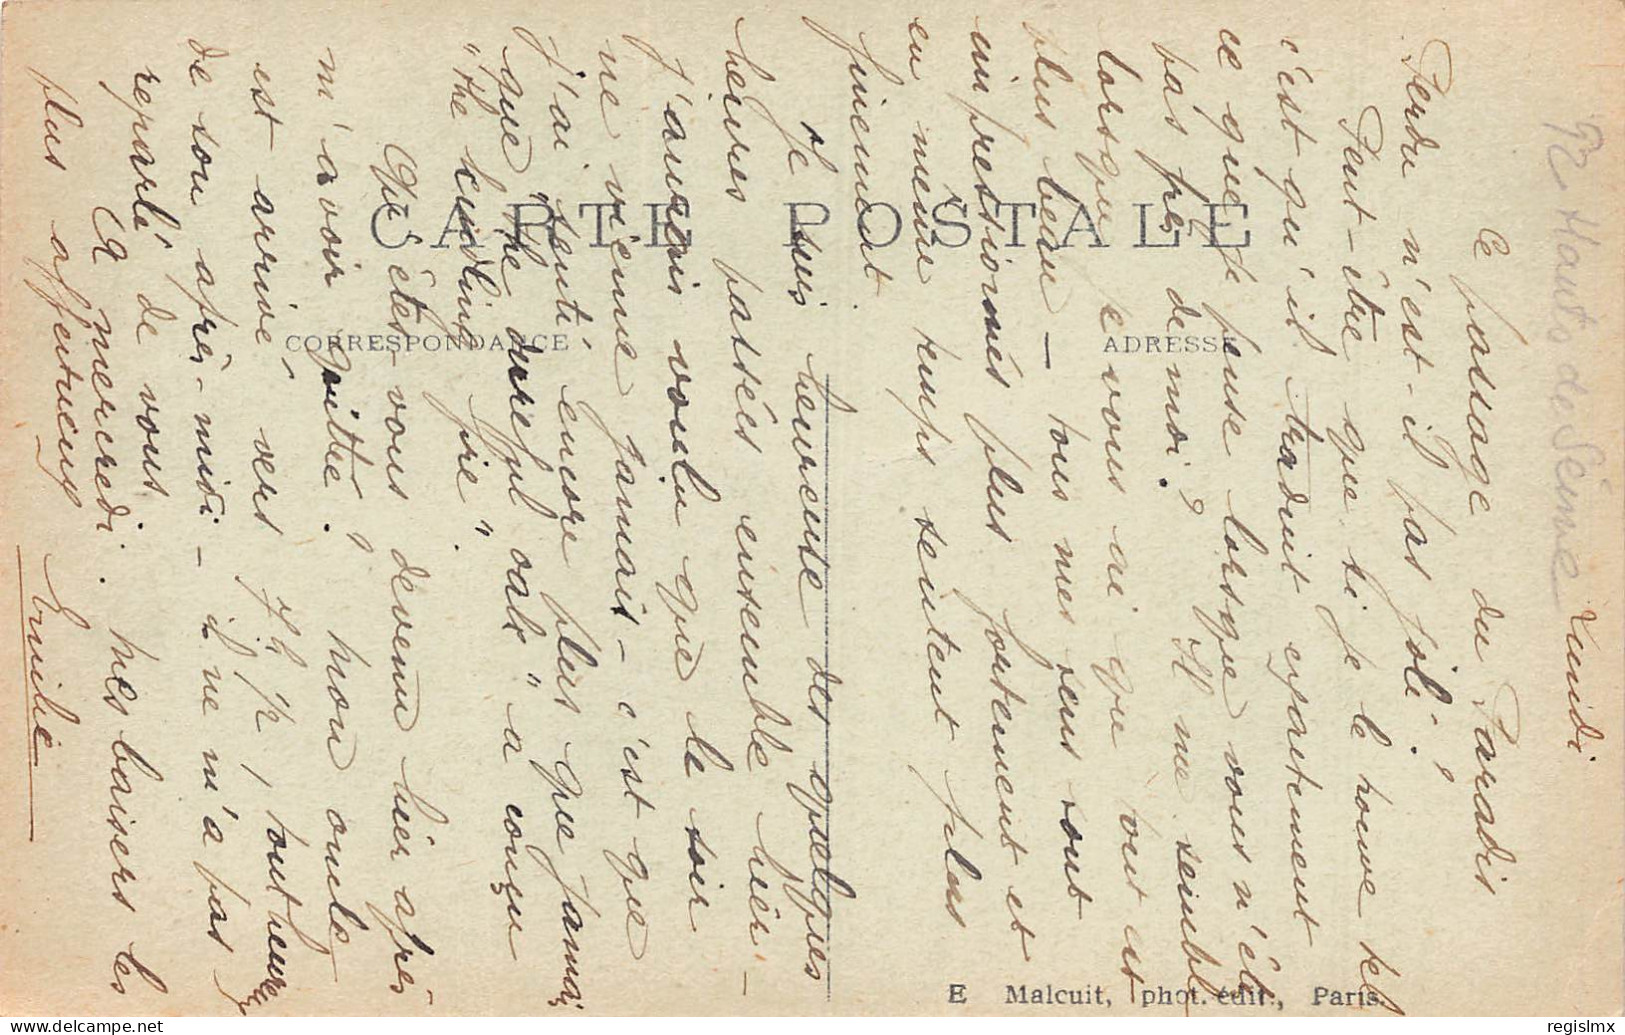 CARTE POSTALE
CORRESPONDANCE
ADRESSE
E Malcuit, phot. édit., Paris.
92 Hauts de Seine
Lundi
Ce passage du Paradis
Perdu n'est-il pas joli ?
Peut-être que si je le trouve tel
c'est qu'il traduit exactement
ce que je pense lorsque vous n'êtes
pas près de moi ? Il me semble
lorsque je vous ai que tout est
plus beau — tous mes sens sont
impressionnés plus fortement et
en même temps sentent plus
finement
Je suis heureuse des quelques
heures passées ensemble hier —
J'aurais voulu que le soir
ne vienne jamais — c'est que
j'ai senti encore plus que jamais
que "the dureful oak" a conçu
"the kindling fire".
Qu'êtes-vous devenu hier après
m'avoir quitté ? Mon oncle
est arrivé vers 7h ½, tout heureux
de son après-midi — il ne m'a pas
reparlé de vous
A mercredi. Mes baisers les
plus affectueux
Emilie
regislmx
www.delcampe.net